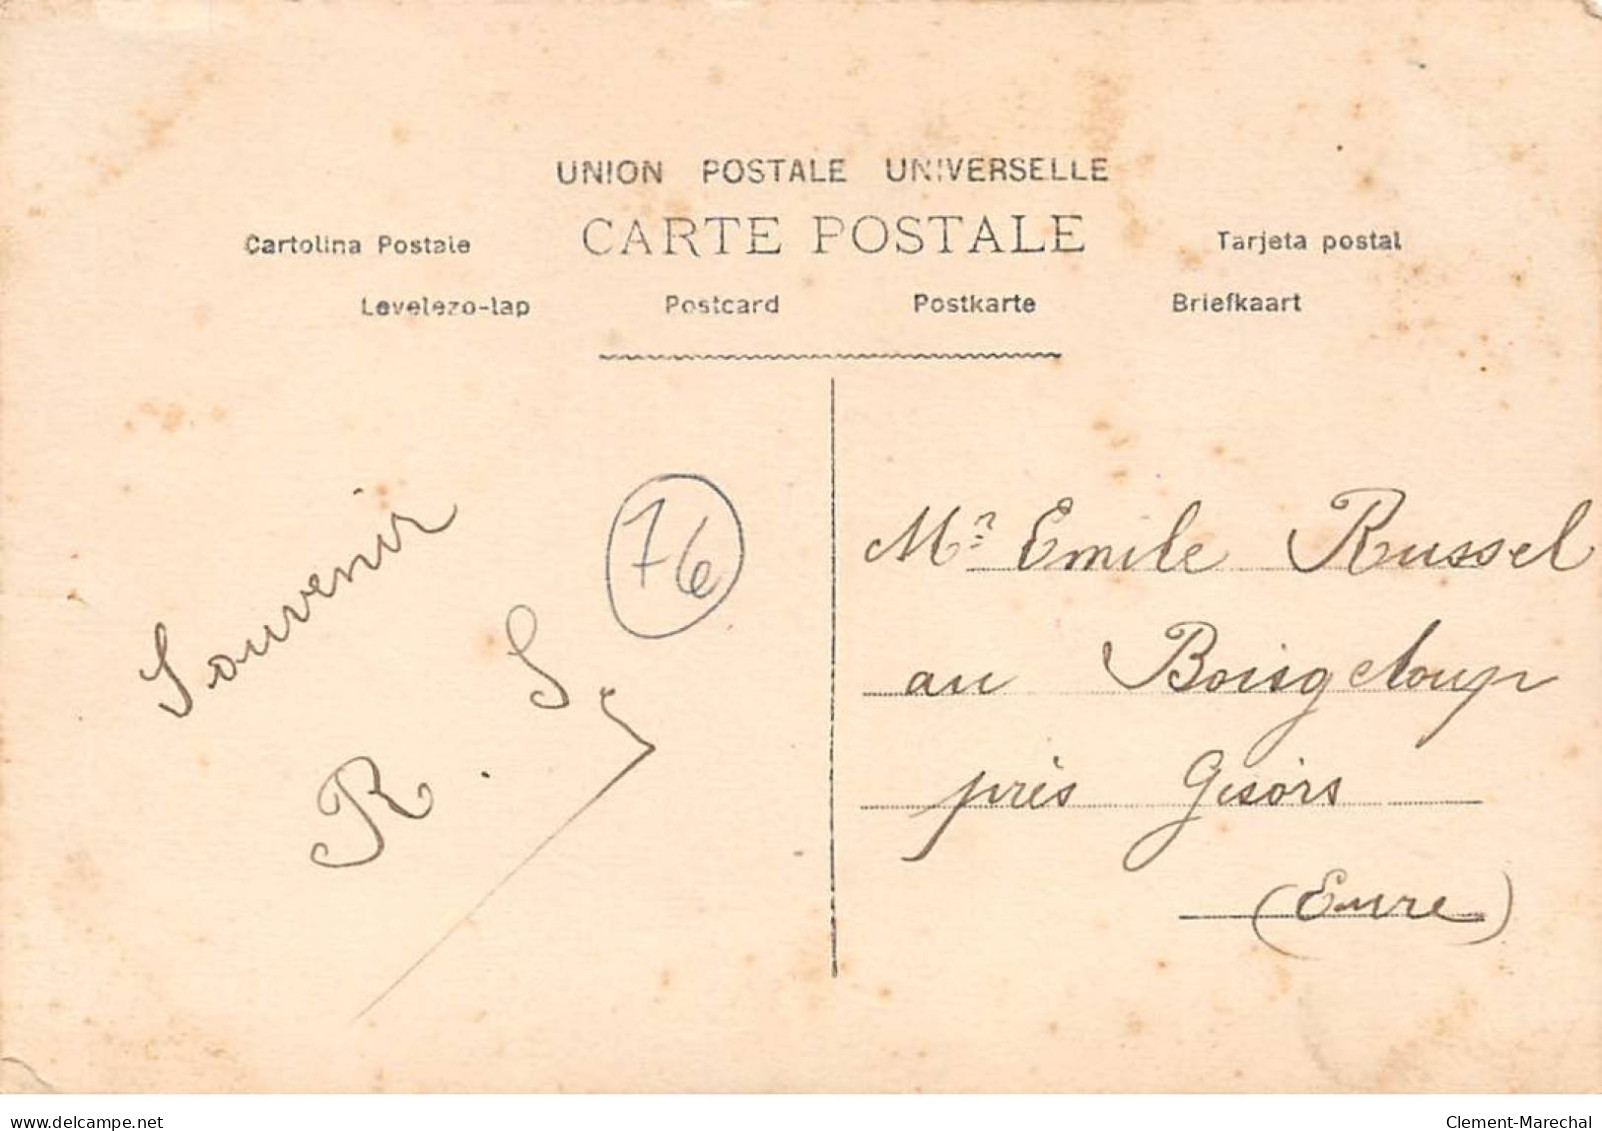 UNION POSTALE UNIVERSELLE
CARTE POSTALE
Cartolina Postale
Tarjeta postal
Levelezo-lap Postcard Postkarte Briefkaart
Souvenir
R. S.
76
Mr Emile Russel
au Boisgeloup
près Gisors
(Eure)
delcampe.net
Clement-Marechal